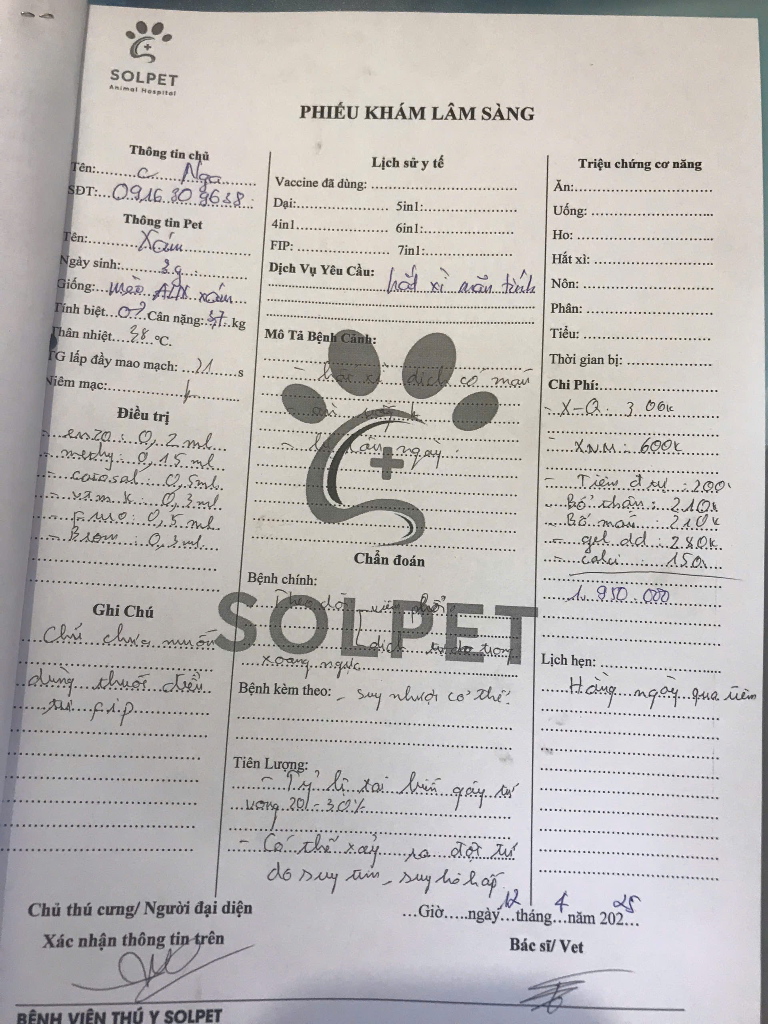 SOLPET
Animal Hospital
PHIẾU KHÁM LÂM SÀNG
Thông tin chủ
Tên: c. Nga
SĐT: 0916 309638
Thông tin Pet
Tên: Xám
Ngày sinh: 3g
Giống: mèo ALN xám
Tính biệt Cân nặng: 3,7 kg
Thân nhiệt 38 °C.
TG lấp đầy mao mạch: 21 s
Niêm mạc:
Điều trị
- enzo : 0,2 ml
- methy : 0,15 ml
- catosal : 0,5ml
- vam k : 0,3ml
- furo : 0,5 ml
- Brom : 0,3 ml
Ghi Chú
Chủ chưa muốn
dùng thuốc điều
trị F.I.P
Lịch sử y tế
Vaccine đã dùng:
Dại: 5in1:
4in1 6in1:
FIP: 7in1:
Dịch Vụ Yêu Cầu: hắt xì mãn tính
Mô Tả Bệnh Cảnh:
- hắt xì dịch có máu
- ăn
ngày
Chẩn đoán
Bệnh chính:
Theo dõi viêm phổi
dịch tự do trong
xoang ngực
Bệnh kèm theo: - suy nhược cơ thể.
Tiên Lượng:
- Tỷ lệ tai biến gây tử
vong 20 - 30%
- Có thể xảy ra đột tử
do suy tim, suy hô hấp
Triệu chứng cơ năng
Ăn:
Uống:
Ho:
Hắt xì:
Nôn:
Phân:
Tiểu:
Thời gian bị:
Chi Phí:
- X-Q: 300k
- XNM: 600k
- Tiêm đ trị : 200k
- Bổ thận : 210k
- Bổ máu : 210k
- gel dd : 280k
- calci : 150k
1.950.000
Lịch hẹn:
Hàng ngày qua tiêm
Chủ thú cưng/ Người đại diện
Xác nhận thông tin trên
...Giờ.....ngày 12 tháng 4 năm 2025
Bác sĩ/ Vet
BỆNH VIỆN THÚ Y SOLPET
SOLPET